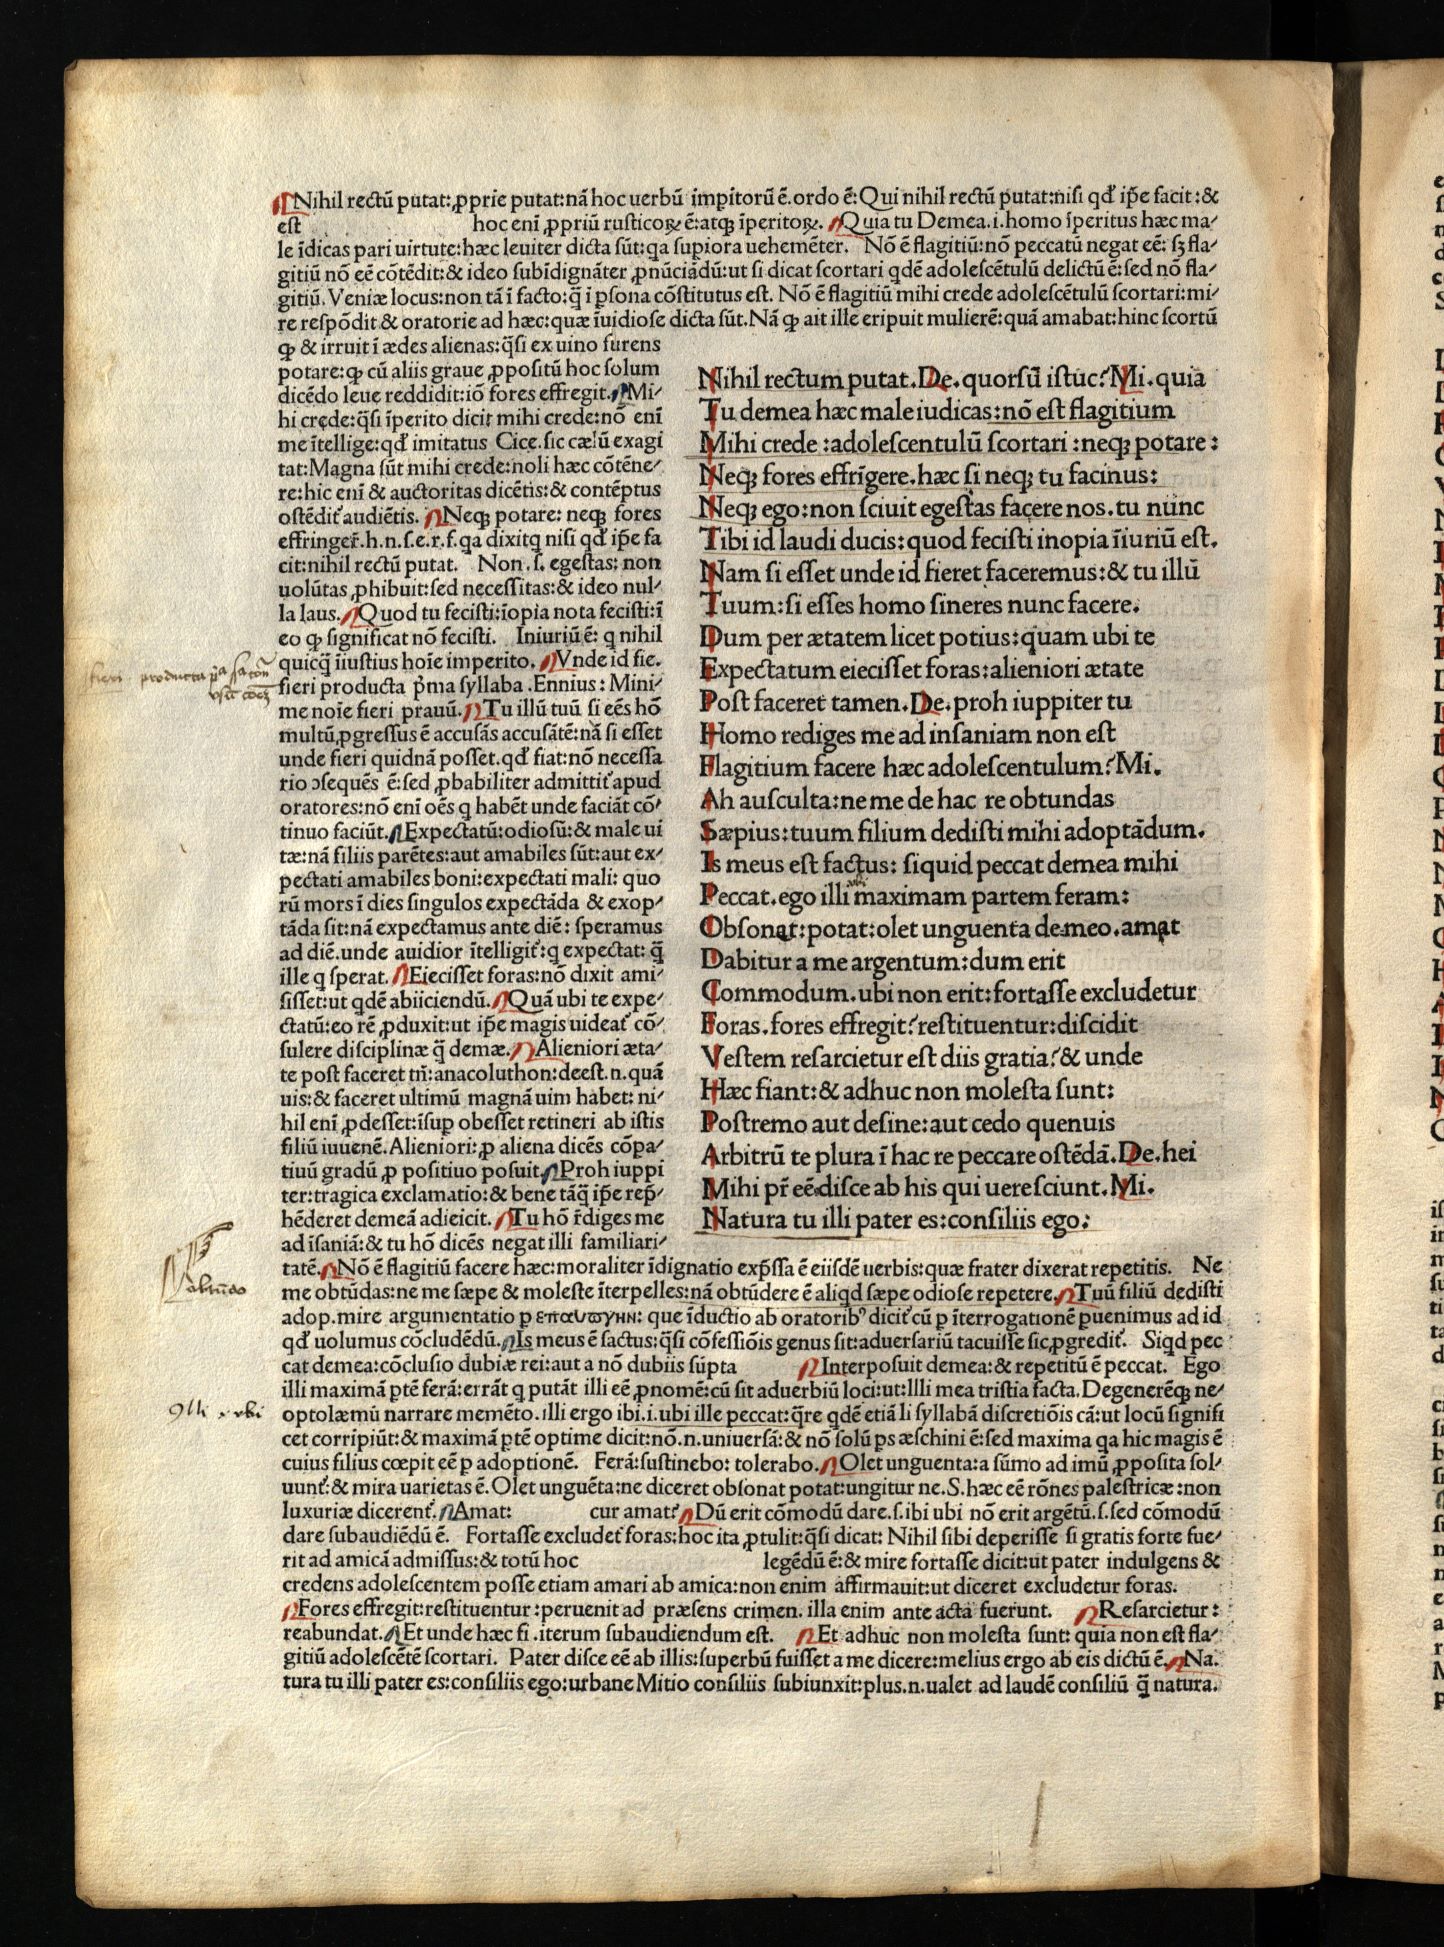 Nihil rectū putat:ꝓprie putat:nā hoc uerbū impitorū ē.ordo ē:Qui nihil rectū putat:nisi qđ ip̄e facit:&
est hoc enī ꝓpriū rusticoꝝ ē:atqꝫ īperitoꝝ. Quia tu Demea.i.homo īperitus hæc ma-
le īdicas pari uirtute:hæc leuiter dicta sūt:qa supiora uehemēter. Nō ē flagitiū:nō peccatū negat eē: sꝫ fla-
gitiū nō eē cōtēdit:& ideo subīdignāter ꝓnūciādū:ut si dicat scortari qdē adolescētulū delictū ē:sed nō fla-
gitiū.Veniæ locus:non tā ī facto:q̄ ī ꝑsona cōstitutus est. Nō ē flagitiū mihi crede adolescētulū scortari:mi-
re respōdit & oratorie ad hæc:quæ īuidiose dicta sūt.Nā ꝙ ait ille eripuit mulierē:quā amabat:hinc scortū
ꝙ & irruit ī ædes alienas:q̄si ex uino furens
potare:ꝙ cū aliis graue ꝓpositū hoc solum
dicēdo leue reddidit:iō fores effregit. Mi-
hi crede:q̄si īperito dicit mihi crede:nō enī
me ītellige:qđ imitatus Cice.sic cælū exagi
tat:Magna sūt mihi crede:noli hæc cōtēne-
re:hic enī & auctoritas dicētis:& contēptus
ostēdit᷑ audiētis. Neqꝫ potare: neqꝫ fores
effringer̄.h.n.s.e.r.f.qa dixitq nisi qđ ip̄e fa
cit:nihil rectū putat. Non.s. egestas: non
uolūtas ꝓhibuit:sed necessitas:& ideo nul-
la laus. Quod tu fecisti:īopia nota fecisti:ī
eo ꝙ significat nō fecisti. Iniuriū ē: q nihil
quicq̄ īiustius hoīe imperito. Vnde id fie.
fieri producta p̄ma syllaba .Ennius: Mini-
me noīe fieri prauū. Tu illū tuū si eēs hō
multū ꝓgressus ē accusās accusātē:nā si esset
unde fieri quidnā posset.qđ fiat:nō necessa
rio ↄsequēs ē:sed ꝓbabiliter admittit᷑ apud
oratores:nō enī oēs q habēt unde faciāt cō-
tinuo faciūt. Expectatū:odiosū:& male ui
tæ:nā filiis parētes:aut amabiles sūt:aut ex-
pectati amabiles boni:expectati mali: quo
rū mors ī dies singulos expectāda & exop-
tāda sit:nā expectamus ante diē: speramus
ad diē.unde auidior ītelligit᷑:q expectat: q̄
ille q sperat. Eiecisset foras:nō dixit ami-
sisset:ut qdē abiiciendū. Quā ubi te expe-
ctatū:eo rē ꝓduxit:ut ip̄e magis uideat᷑ cō-
sulere disciplinæ q̄ demæ. Alieniori æta-
te post faceret tn̄:anacoluthon:deest.n.quā
uis:& faceret ultimū magnā uim habet: ni-
hil enī ꝓdesset:īsuꝑ obesset retineri ab istis
filiū iuuenē.Alieniori:ꝓ aliena dicēs cōpa-
tiuū gradū ꝓ positiuo posuit. Proh iuppi
ter:tragica exclamatio:& bene tāq̄ ip̄e rep̄-
hēderet demeā adieicit. Tu hō r̄diges me
ad īsaniā:& tu hō dicēs negat illi familiari-
Nihil rectum putat.De.quorsū istuc?Mi.quia
Tu demea hæc male iudicas:nō est flagitium
Mihi crede :adolescentulū scortari :neqꝫ potare:
Neqꝫ fores effrīgere.hæc si neqꝫ tu facinus:
Neqꝫ ego:non sciuit egestas facere nos.tu nūnc
Tibi id laudi ducis:quod fecisti inopia īiuriū est.
Nam si esset unde id fieret faceremus:& tu illū
Tuum:si esses homo sineres nunc facere.
Dum per ætatem licet potius:quam ubi te
Expectatum eiecisset foras:alieniori ætate
Post faceret tamen.De.proh iuppiter tu
Homo rediges me ad insaniam non est
Flagitium facere hæc adolescentulum?Mi.
Ah ausculta:ne me de hac re obtundas
Sæpius:tuum filium dedisti mihi adoptādum.
Is meus est factus: siquid peccat demea mihi
Peccat.ego illi maximam partem feram:
Obsonat:potat:olet unguenta de meo.amat
Dabitur a me argentum:dum erit
Commodum.ubi non erit:fortasse excludetur
Foras.fores effregit?restituentur:discidit
Vestem resarcietur est diis gratia?& unde
Hæc fiant:& adhuc non molesta sunt:
Postremo aut desine:aut cedo quenuis
Arbitrū te plura ī hac re peccare ostēdā.De.hei
Mihi pr̄ eē disce ab his qui uere sciunt.Mi.
Natura tu illi pater es:consiliis ego:
tatē. Nō ē flagitiū facere hæc:moraliter īdignatio exp̄ssa ē eiisdē uerbis:quæ frater dixerat repetitis. Ne
me obtūdas:ne me sæpe & moleste īterpelles:nā obtūdere ē aliqd sæpe odiose repetere. Tuū filiū dedisti
adop.mire argumentatio ꝑ : que īductio ab oratoribꝰ dicit᷑ cū ꝑ īterrogationē puenimus ad id
qđ uolumus cōcludēdū. Is meus ē factus:q̄si cōfessiōis genus sit:aduersariū tacuisse sic ꝓgredit᷑. Siqd pec
cat demea:cōclusio dubiæ rei:aut a nō dubiis sūpta Interposuit demea:& repetitū ē peccat. Ego
illi maximā ꝑtē ferā:errāt q putāt illi eē ꝓnomē:cū sit aduerbiū loci:ut:Illi mea tristia facta.Degenerēqꝫ ne-
optolæmū narrare memēto.illi ergo ibi.i.ubi ille peccat:q̄re qdē etiā li syllabā discretiōis cā:ut locū signifi
cet corripiūt:& maximā ꝑtē optime dicit:nō.n.uniuersā:& nō solū ꝑs æschini ē:sed maxima qa hic magis ē
cuius filius cœpit eē ꝑ adoptionē. Ferā:sustinebo: tolerabo. Olet unguenta:a sūmo ad imū ꝓposita sol-
uunt᷑:& mira uarietas ē.Olet unguēta:ne diceret obsonat potat:ungitur ne.S.hæc eē rōnes palestricæ:non
luxuriæ dicerent᷑. Amat: cur amat? Dū erit cōmodū dare.s.ibi ubi nō erit argētū.s.sed cōmodū
dare subaudiēdū ē. Fortasse excludet᷑ foras:hoc ita ꝓtulit:q̄si dicat: Nihil sibi deperisse si gratis forte fue-
rit ad amicā admissus:& totū hoc legēdū ē:& mire fortasse dicit:ut pater indulgens &
credens adolescentem posse etiam amari ab amica:non enim affirmauit:ut diceret excludetur foras.
Fores effregit:restituentur:peruenit ad præsens crimen. illa enim ante acta fuerunt. Resarcietur:
reabundat. Et unde hæc fi .iterum subaudiendum est. Et adhuc non molesta sunt: quia non est fla-
gitiū adolescētē scortari. Pater disce eē ab illis:superbū fuisset a me dicere:melius ergo ab eis dictū ē. Na.
tura tu illi pater es:consiliis ego:urbane Mitio consiliis subiunxit:plus.n.ualet ad laudē consiliū q̄ natura.